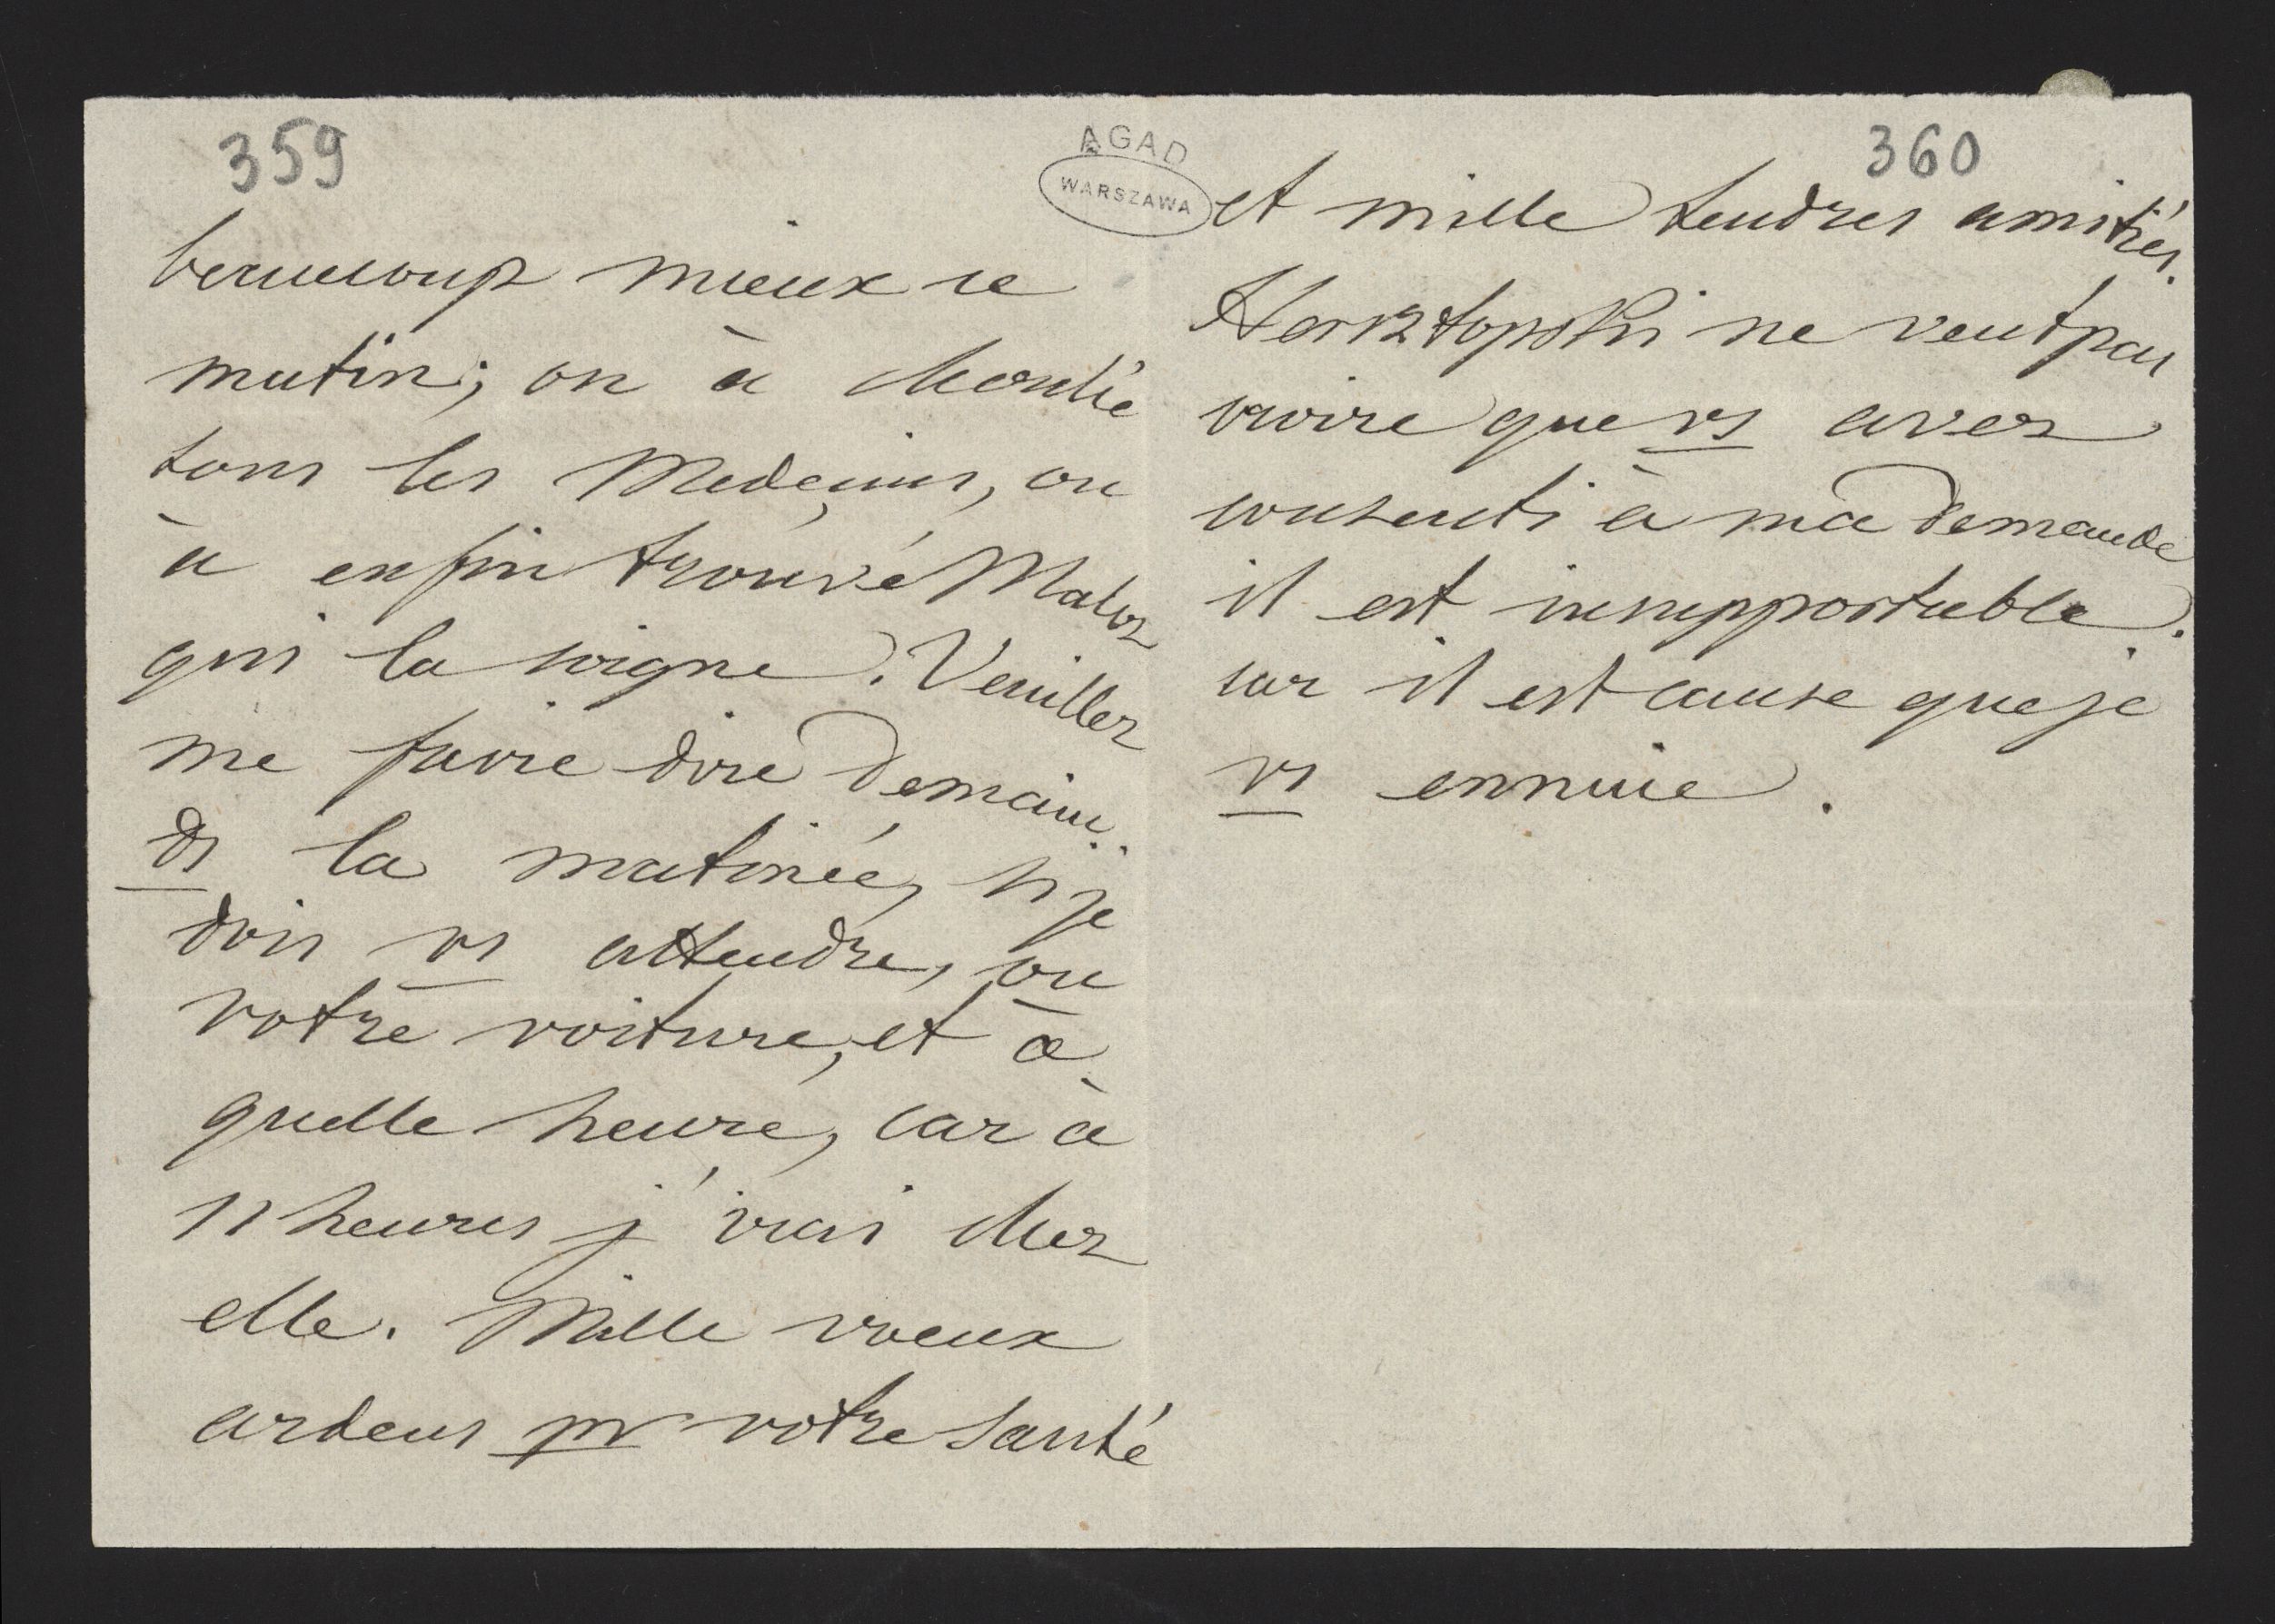 359
beaucoup mieux ce
matin; on à cherché
tous les Medeçins, on
à enfin trouvé Malcz
qui la soigne. Veuillez
me faire dire demain
ds la matinée, si je
dois vs attendre, ou
votre voiture, et à
quelle heure, car à
11 heures j'irai chez
elle. Mille voeux
ardens pr votre santé
AGAD
WARSZAWA
360
et mille tendres amitiés.
ne veut pas
croire que vs avez
consenti à ma demande
il est insupportable.
car il est cause que je
vs ennuie.